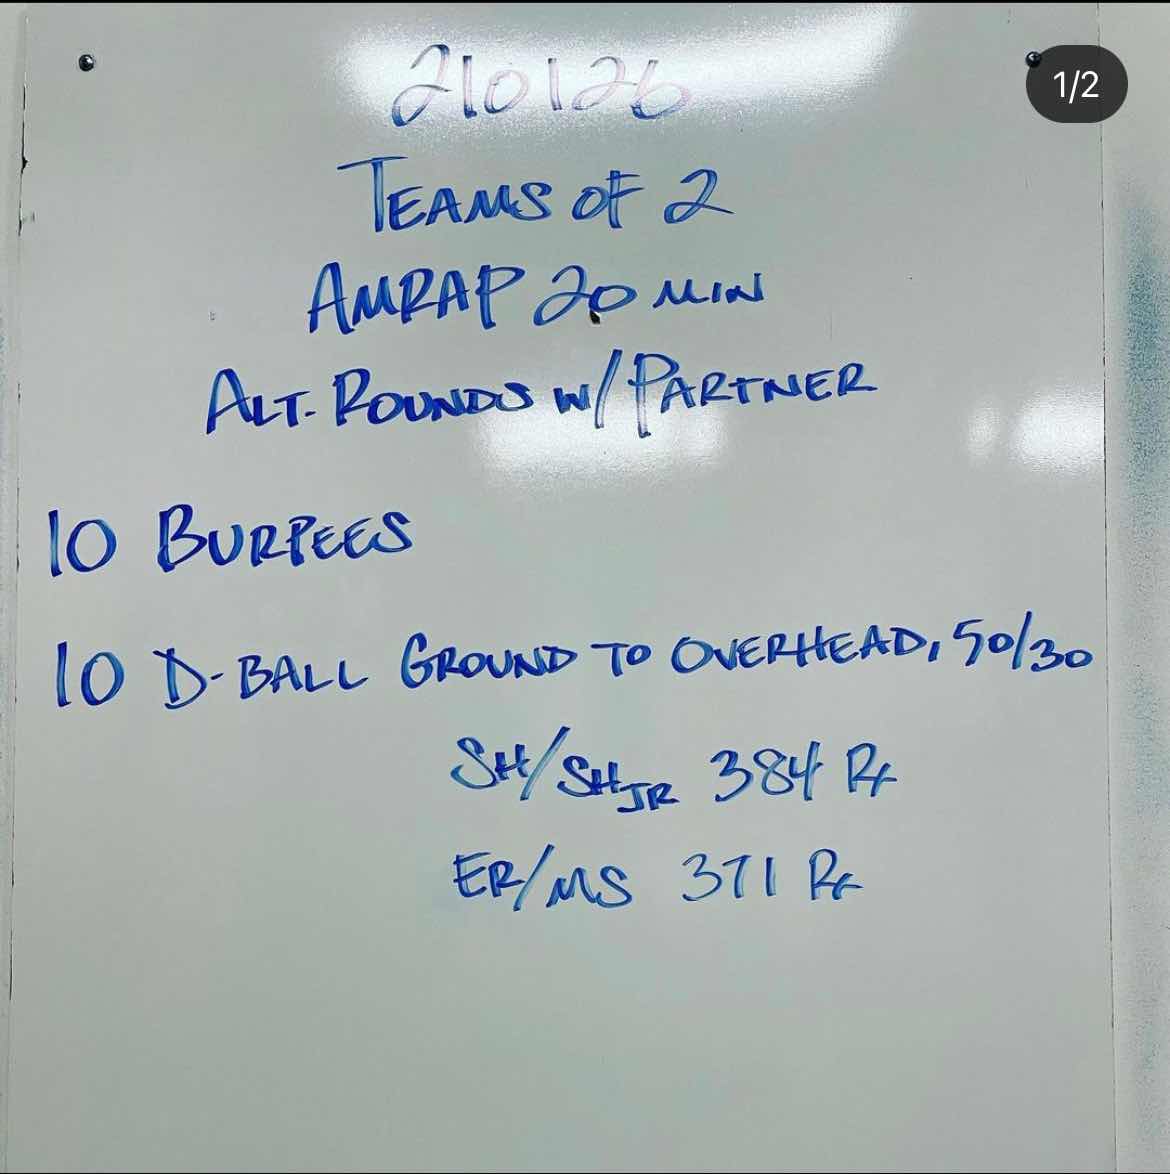 210126
1/2
TEAMS OF 2
AMRAP 20 MIN
ALT. ROUNDS W/ PARTNER
10 BURPEES
10 D-BALL GROUND TO OVERHEAD, 50/30
SH/SHJR 384 Rx
ER/MS 371 Rx